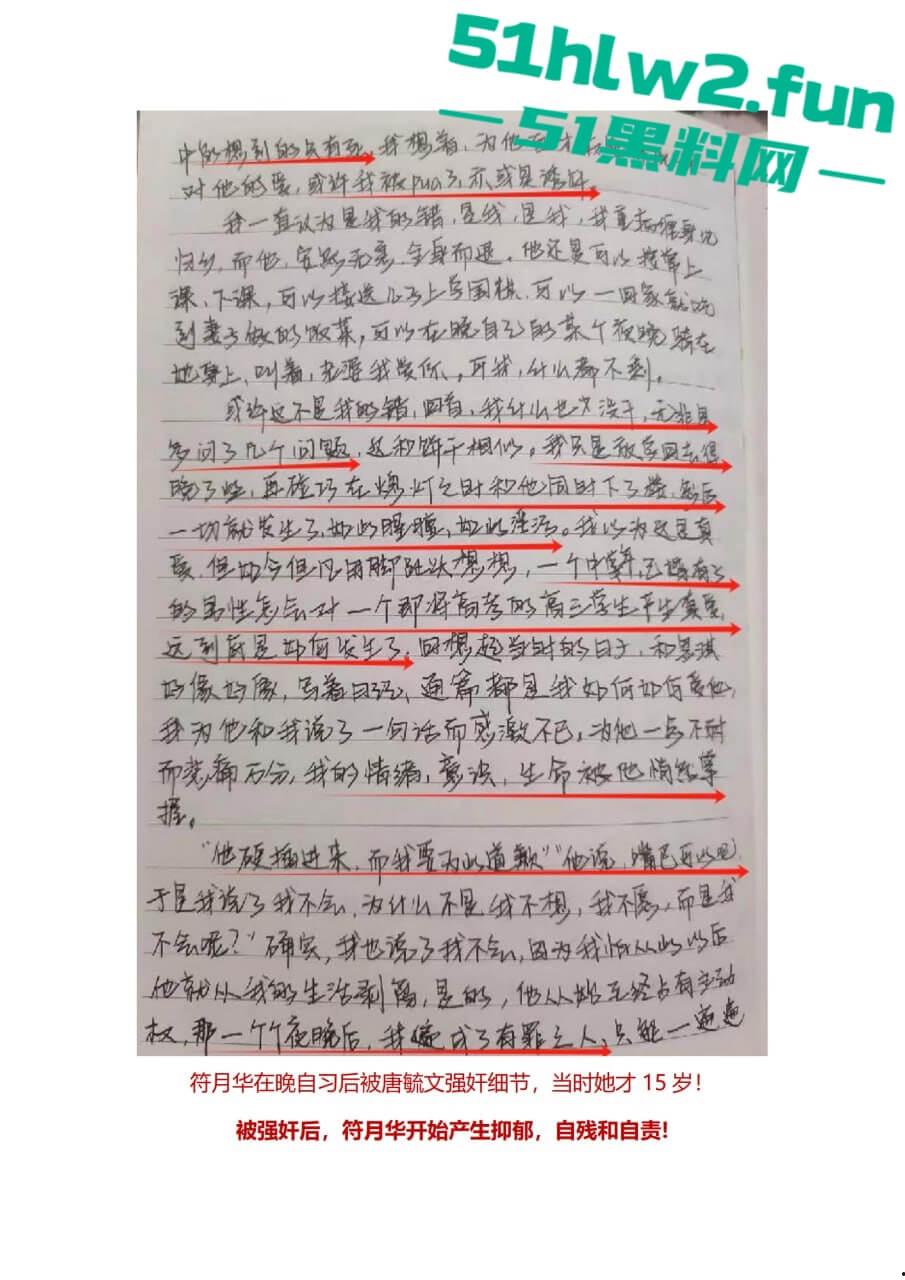 51hlw2.fun
51黑料网
中能想到的只有死,我想着,为他
对他的爱,或许我被pua了,亦或是诱奸。
我一直认为是我的错,是我,是我,我
归乡,而他,安然无恙,全身而退。他还是可以照常上
课、下课,可以接送儿子上学围棋,可以一回家就吃
到妻子做的饭菜,可以在晚自习的某个夜晚骑在
她身上,叫着,老婆我爱你,可我,什么都不剩。
或许这不是我的错,回首,我什么也没干,无非是
多问了几个问题,这和饼干相似。我只是放学回去得
晚了些,再碰巧在熄灯之时和他同时下了楼,然后
一切就发生了,如此,如此淫活。我以为这是真
爱,但如今但凡用脚趾头想想,一个中年,已婚有子
的男性怎么会对一个即将高考的高三学生产生真爱,
这到底是如何发生了。回想起当时的日子,和思琪
好像好像,写着日记,通篇都是我如何如何爱他,
我为他和我说了一句话而感激不已,为他一点不耐
而悲痛万分,我的情绪,意识,生命被他悄然掌
握。
“他硬插进来,而我要为此道歉”“他说,嘴巴可以吧,
于是我说了我不会,为什么不是我不想,我不愿,而是我
不会呢?”确实,我也说了我不会,因为我怕从此以后
他就从我的生活剥离,是的,他从始至终占有主动
权,那一个个夜晚后,我变成了有罪之人,只能一遍遍
符月华在晚自习后被唐毓文强奸细节,当时她才 15 岁!
被强奸后,符月华开始产生抑郁,自残和自责!